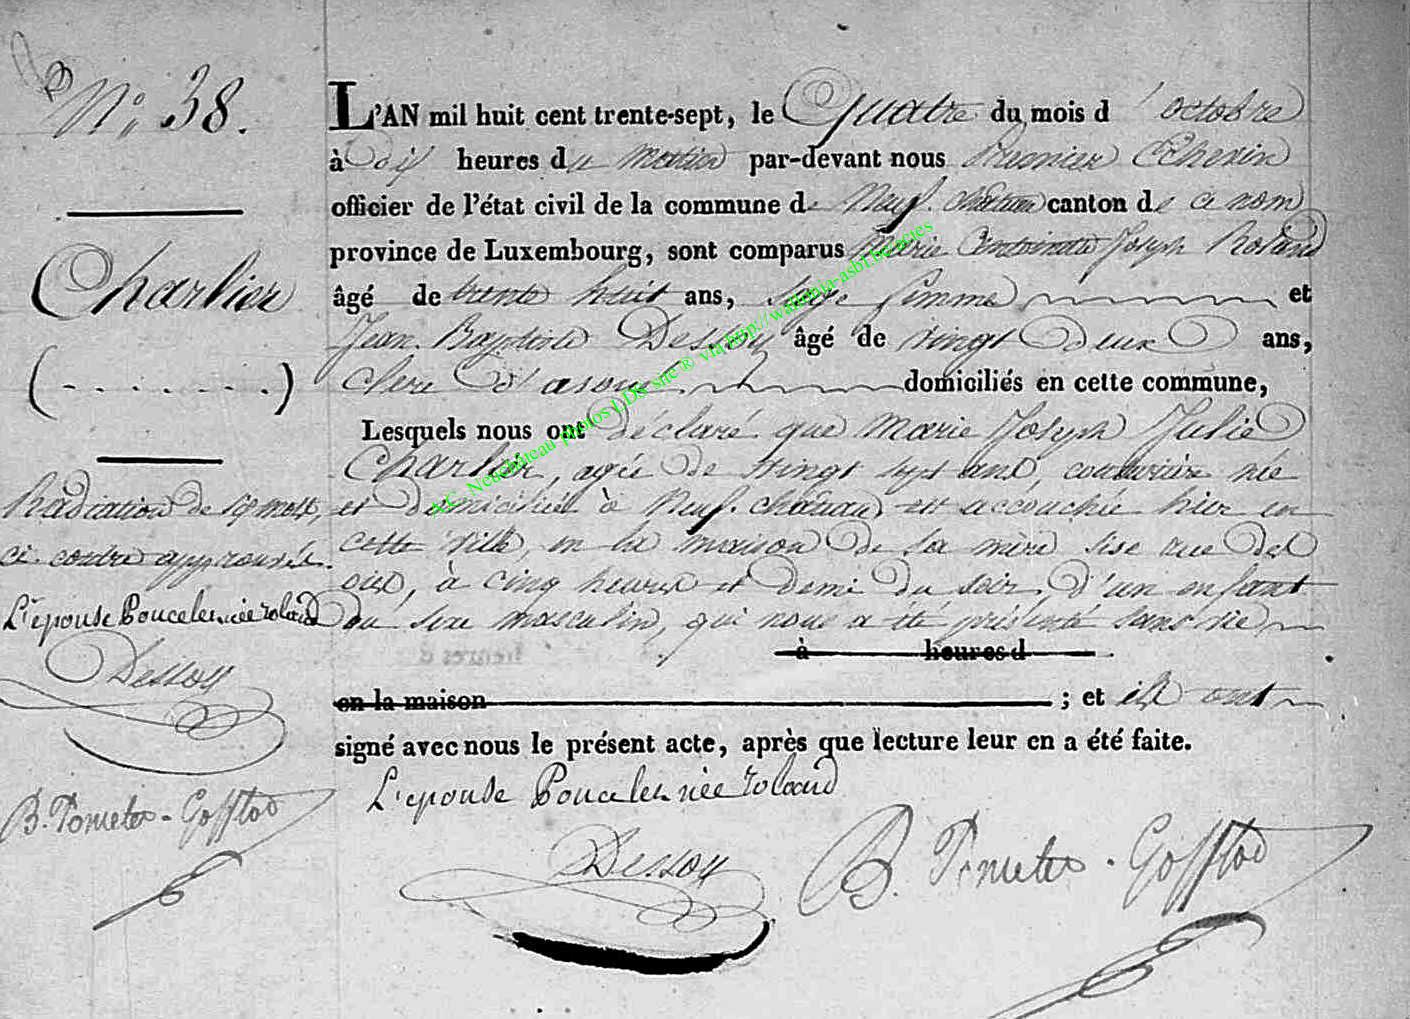 N° 38.
Charlier
(- . . . . . .)
Radiation de sept mots,
ci contre approuvée.
L'épouse Poncelet née roland
Dessoy
B. Pomeles - Gofflot
L'AN mil huit cent trente-sept, le Quatre du mois d'octobre
à dix heures du matin par-devant nous Premier Echevin
officier de l'état civil de la commune de Neufchâteau canton de ce nom
province de Luxembourg, sont comparus Marie Joseph Roland
âgé de trente huit ans, Sage femme et
Jean Baptiste Dessoy âgé de vingt deux ans,
Clerc d'avoué domiciliés en cette commune,
Lesquels nous ont déclaré que Marie Joseph Julie
Charlier, agée de vingt sept ans, couturière née
et domiciliée à Neufchateau est accouchée hier en
cette ville, en la maison de sa mère sise rue des
oies, à cinq heures et demi du soir, d'un enfant
du sexe masculin, qui nous a été présenté sans vie
à heures d
en la maison ; et ils ont
signé avec nous le présent acte, après que lecture leur en a été faite.
L'epouse Poncelet née roland
Dessoy
B. - Gofflot
A.C. Neufchâteau photos LDS site ® via http://wallonia-asbl.be/actes